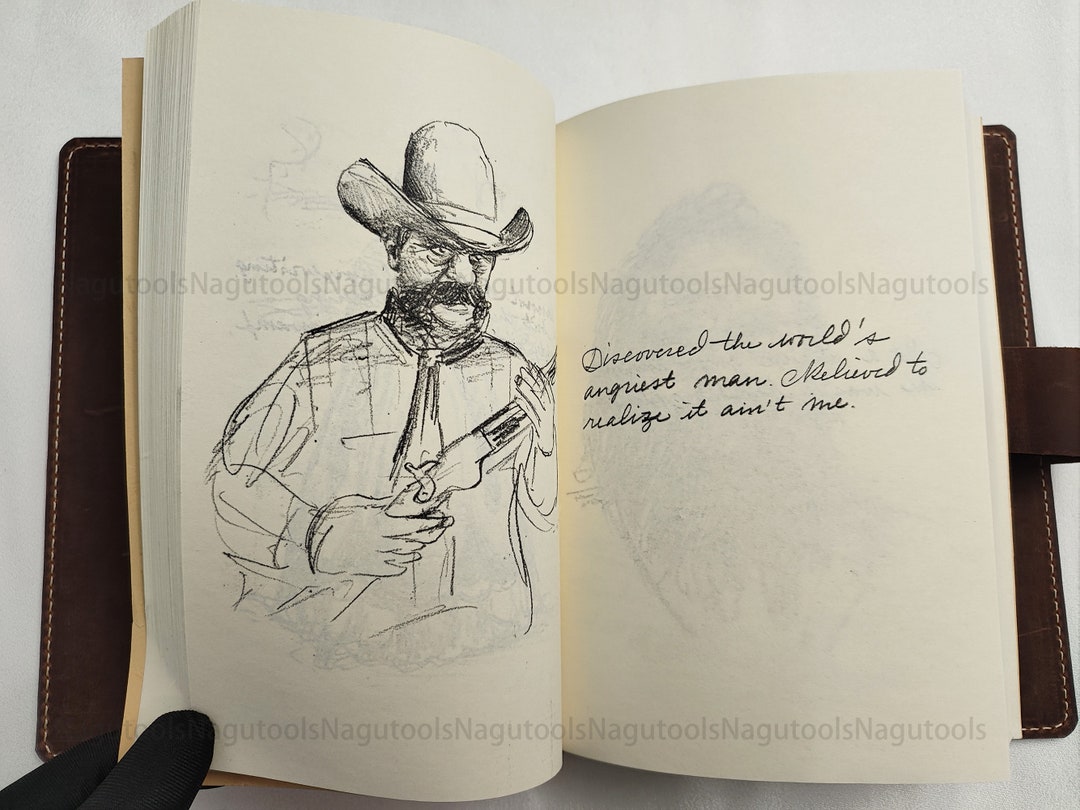 NagutoolsNagutoolsNagutoolsNagutoolsNagutoolsNagutools
Discovered the world's
angriest man. Relieved to
realize it ain't me.
toolsNagutoolsNagutoolsNagutoolsNagutoolsNagutools